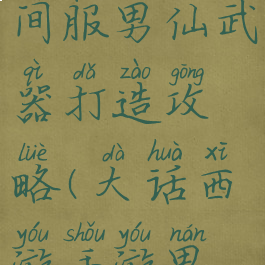 间服男仙武
qì dǎ zào gōng
器打造攻
lüè dà huà xī
略(大话西
yóu shǒu yóu nán
游手游男